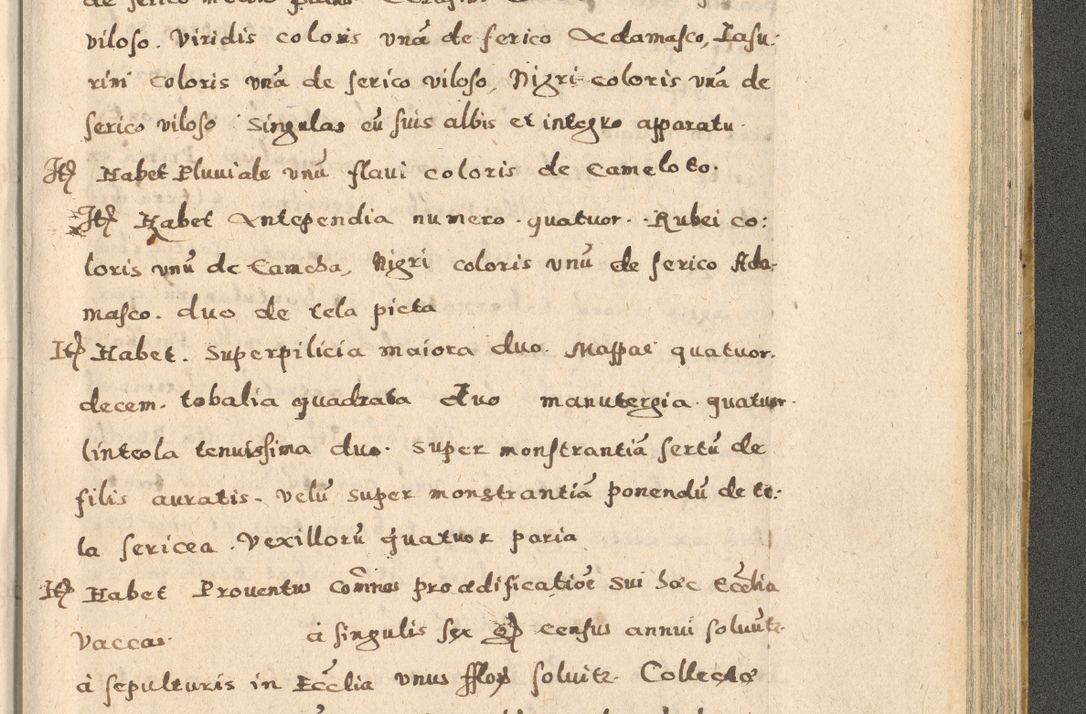 viloso. Viridis coloris unā de serico Adamasco, Iasu:
rini coloris unā de serico viloso, Nigri coloris unā de
serico viloso Singulas cū suis albis et integro apparatu.
Itē Habet Pluuiale unū flaui coloris de Cameloto.
Itē Habet Antependia numero quatuor. Rubei co:
loris unū de Camcha, Nigri coloris unū de serico Ada:
masco. duo de tela picta
Itē Habet. Superpilicia maiora duo. Mappae quatuor.
decem. tobalia quadrata duo manutergia quatuor.
linteola tenuissima duo. Super monstrantiā sertū de
filis auratis. Velū super monstrantiā ponendū de te:
la sericea. Vexillorū quatuor paria
Itē Habet Proventus com̄nes pro aedificatiōe sui haec Eccīia
Vaccas. à singulis sex census annui soluūtr
à sepulturis in Eccīia unus solvitr. Collectae